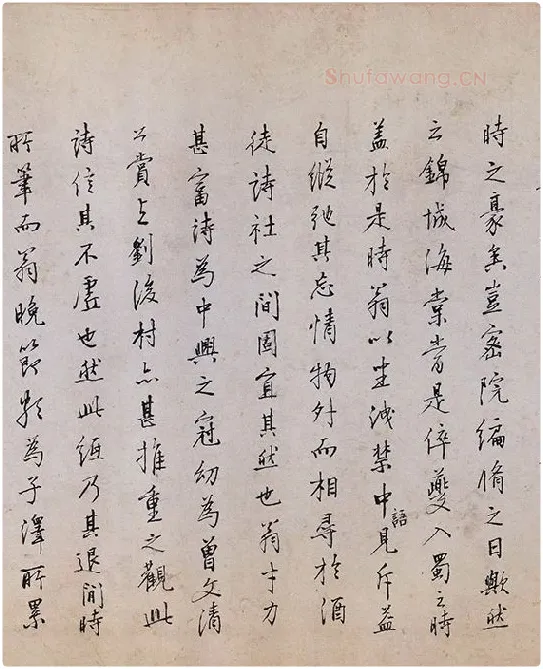 Shufawang.CN
時之豪矣豈密院編脩之日歟然
云錦城海棠當是倅夔入蜀之時
盖於是時翁以坐洩禁中語見斥益
自縱弛其忘情物外而相尋於酒
徒詩社之間固宜其然也翁才力
甚富詩為中興之冠幼為曾文清
公賞劉後村亦甚推重之觀此
詩信其不虛也然此紙乃其退閒時
所筆而翁晚節頗為子澤所累